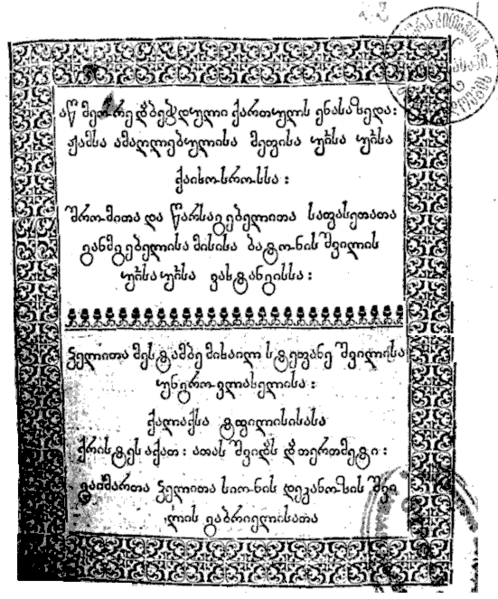 აწ მეორედ დაბეჭდული ქართულს ენასა ზედა:
ჟამსა ამაღლებულისა მეფისა უისა უისა
ქაიხოსროსსა:
შრომითა და წარსაგებელითა საფასეთათა
განმგებელისა მისისა ბატონის შვილის
უისა უისა ვახტანგისსა:
ჴელითა მესტამბე მიხაილ სტეფანე შვილისა
უნგროვლახელისა:
ქალაქსა ტფილისისასა
ქრისტეს აქათ: ათას შვიდას და თერთმეტი:
გაიმართა ჴელითა სიონის დეკანოზის შვი
ლის გაბრიელისათა